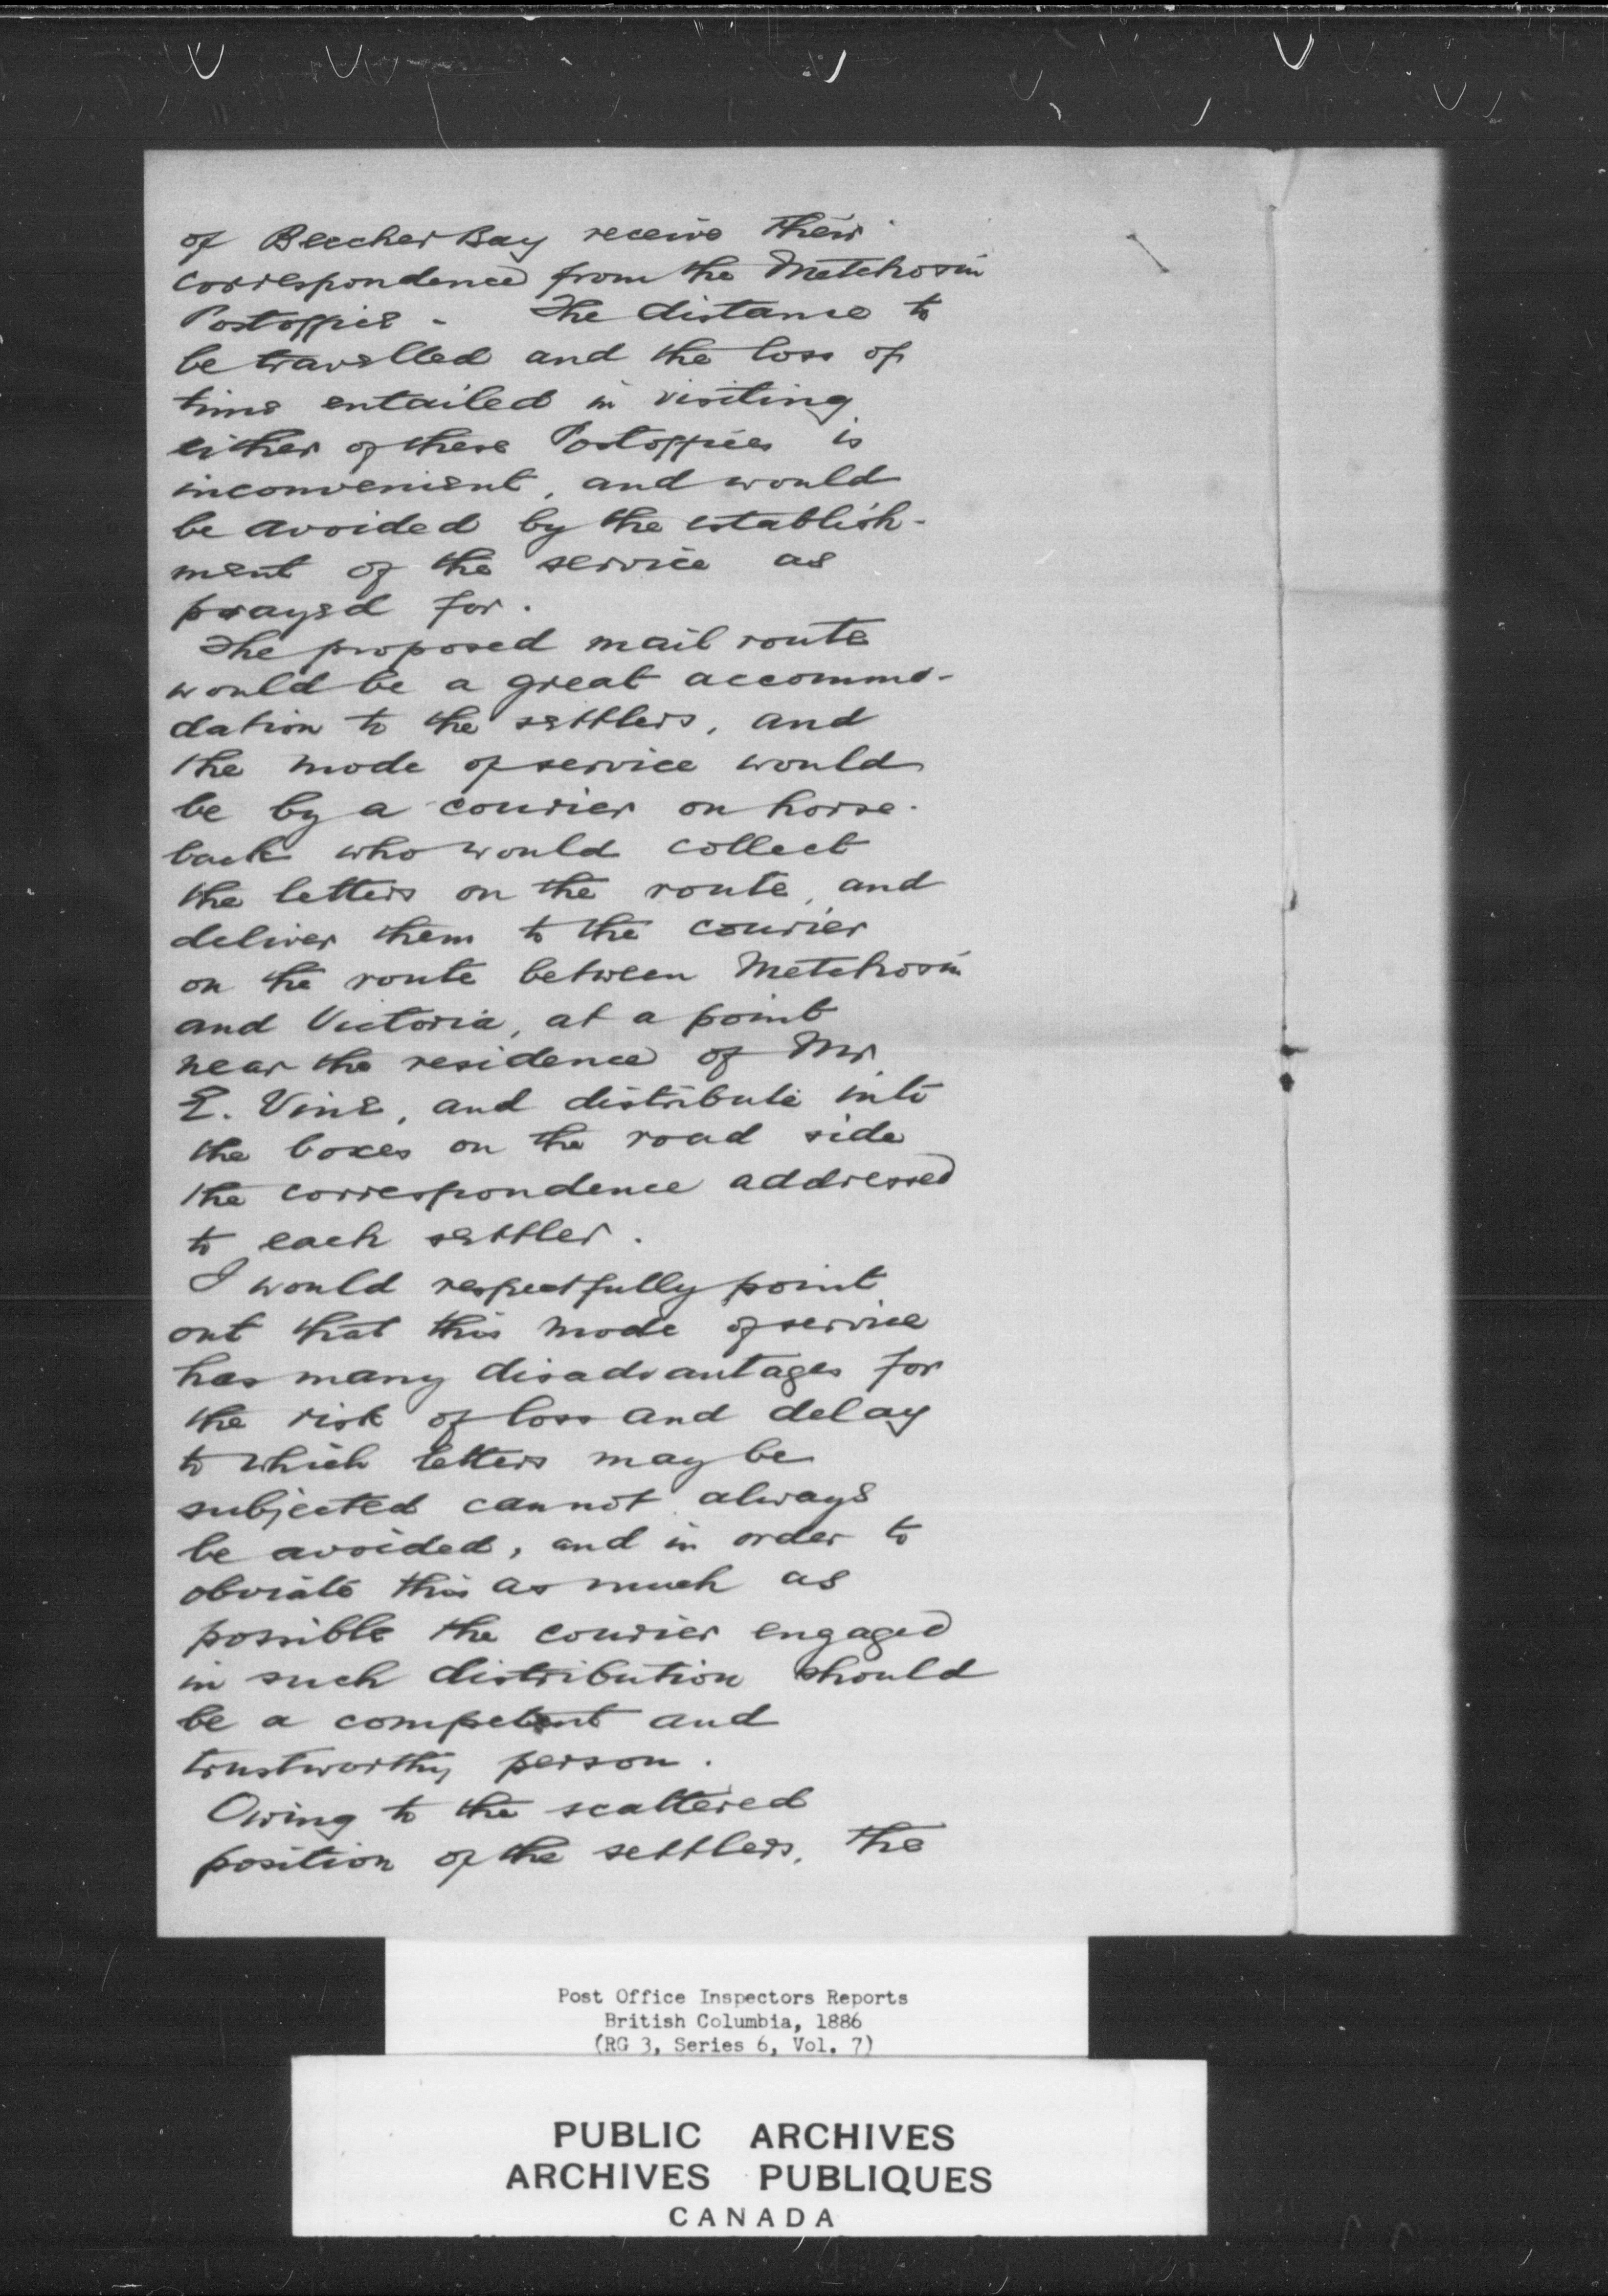 of Beecher Bay receive their
correspondence from the Metchosin
Postoffice - The distance to
be travelled and the loss of
time entailed in visiting
either of these Postoffices is
inconvenient, and would
be avoided by the establish-
ment of the service as
prayed for.
The proposed mail route
would be a great accommo-
dation to the settlers, and
the mode of service would
be by a courier on horse-
back who would collect
the letters on the route, and
deliver them to the courier
on the route between Metchosin
and Victoria, at a point
near the residence of Mr
E. Vine, and distribute into
the boxes on the road side
the correspondence addressed
to each settler.
I would respectfully point
out that this mode of service
has many disadvantages for
the risk of loss and delay
to which letters may be
subjected cannot always
be avoided, and in order to
obviate this as much as
possible the courier engaged
in such distribution should
be a competent and
trustworthy person.
Owing to the scattered
position of the settlers, the
Post Office Inspectors Reports
British Columbia, 1886
(RG 3, Series 6, Vol. 7)
PUBLIC ARCHIVES
ARCHIVES PUBLIQUES
CANADA